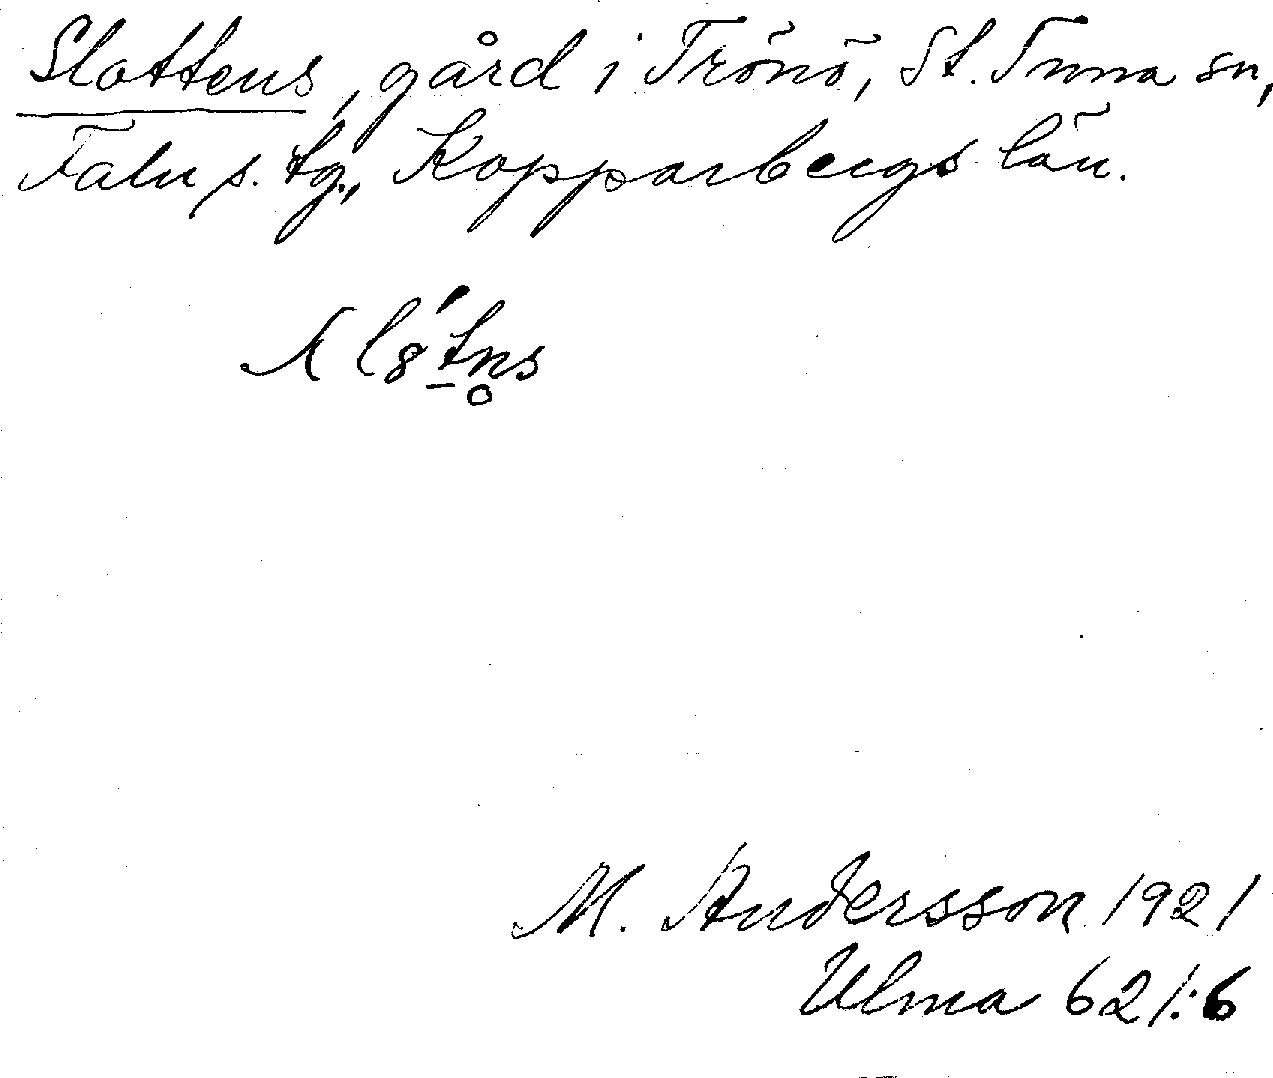 Slottens, gård i Trönö, St. Tuna sn,
Falu s. tg., Kopparbergs län.
M. Andersson 1921
Ulma 621:6